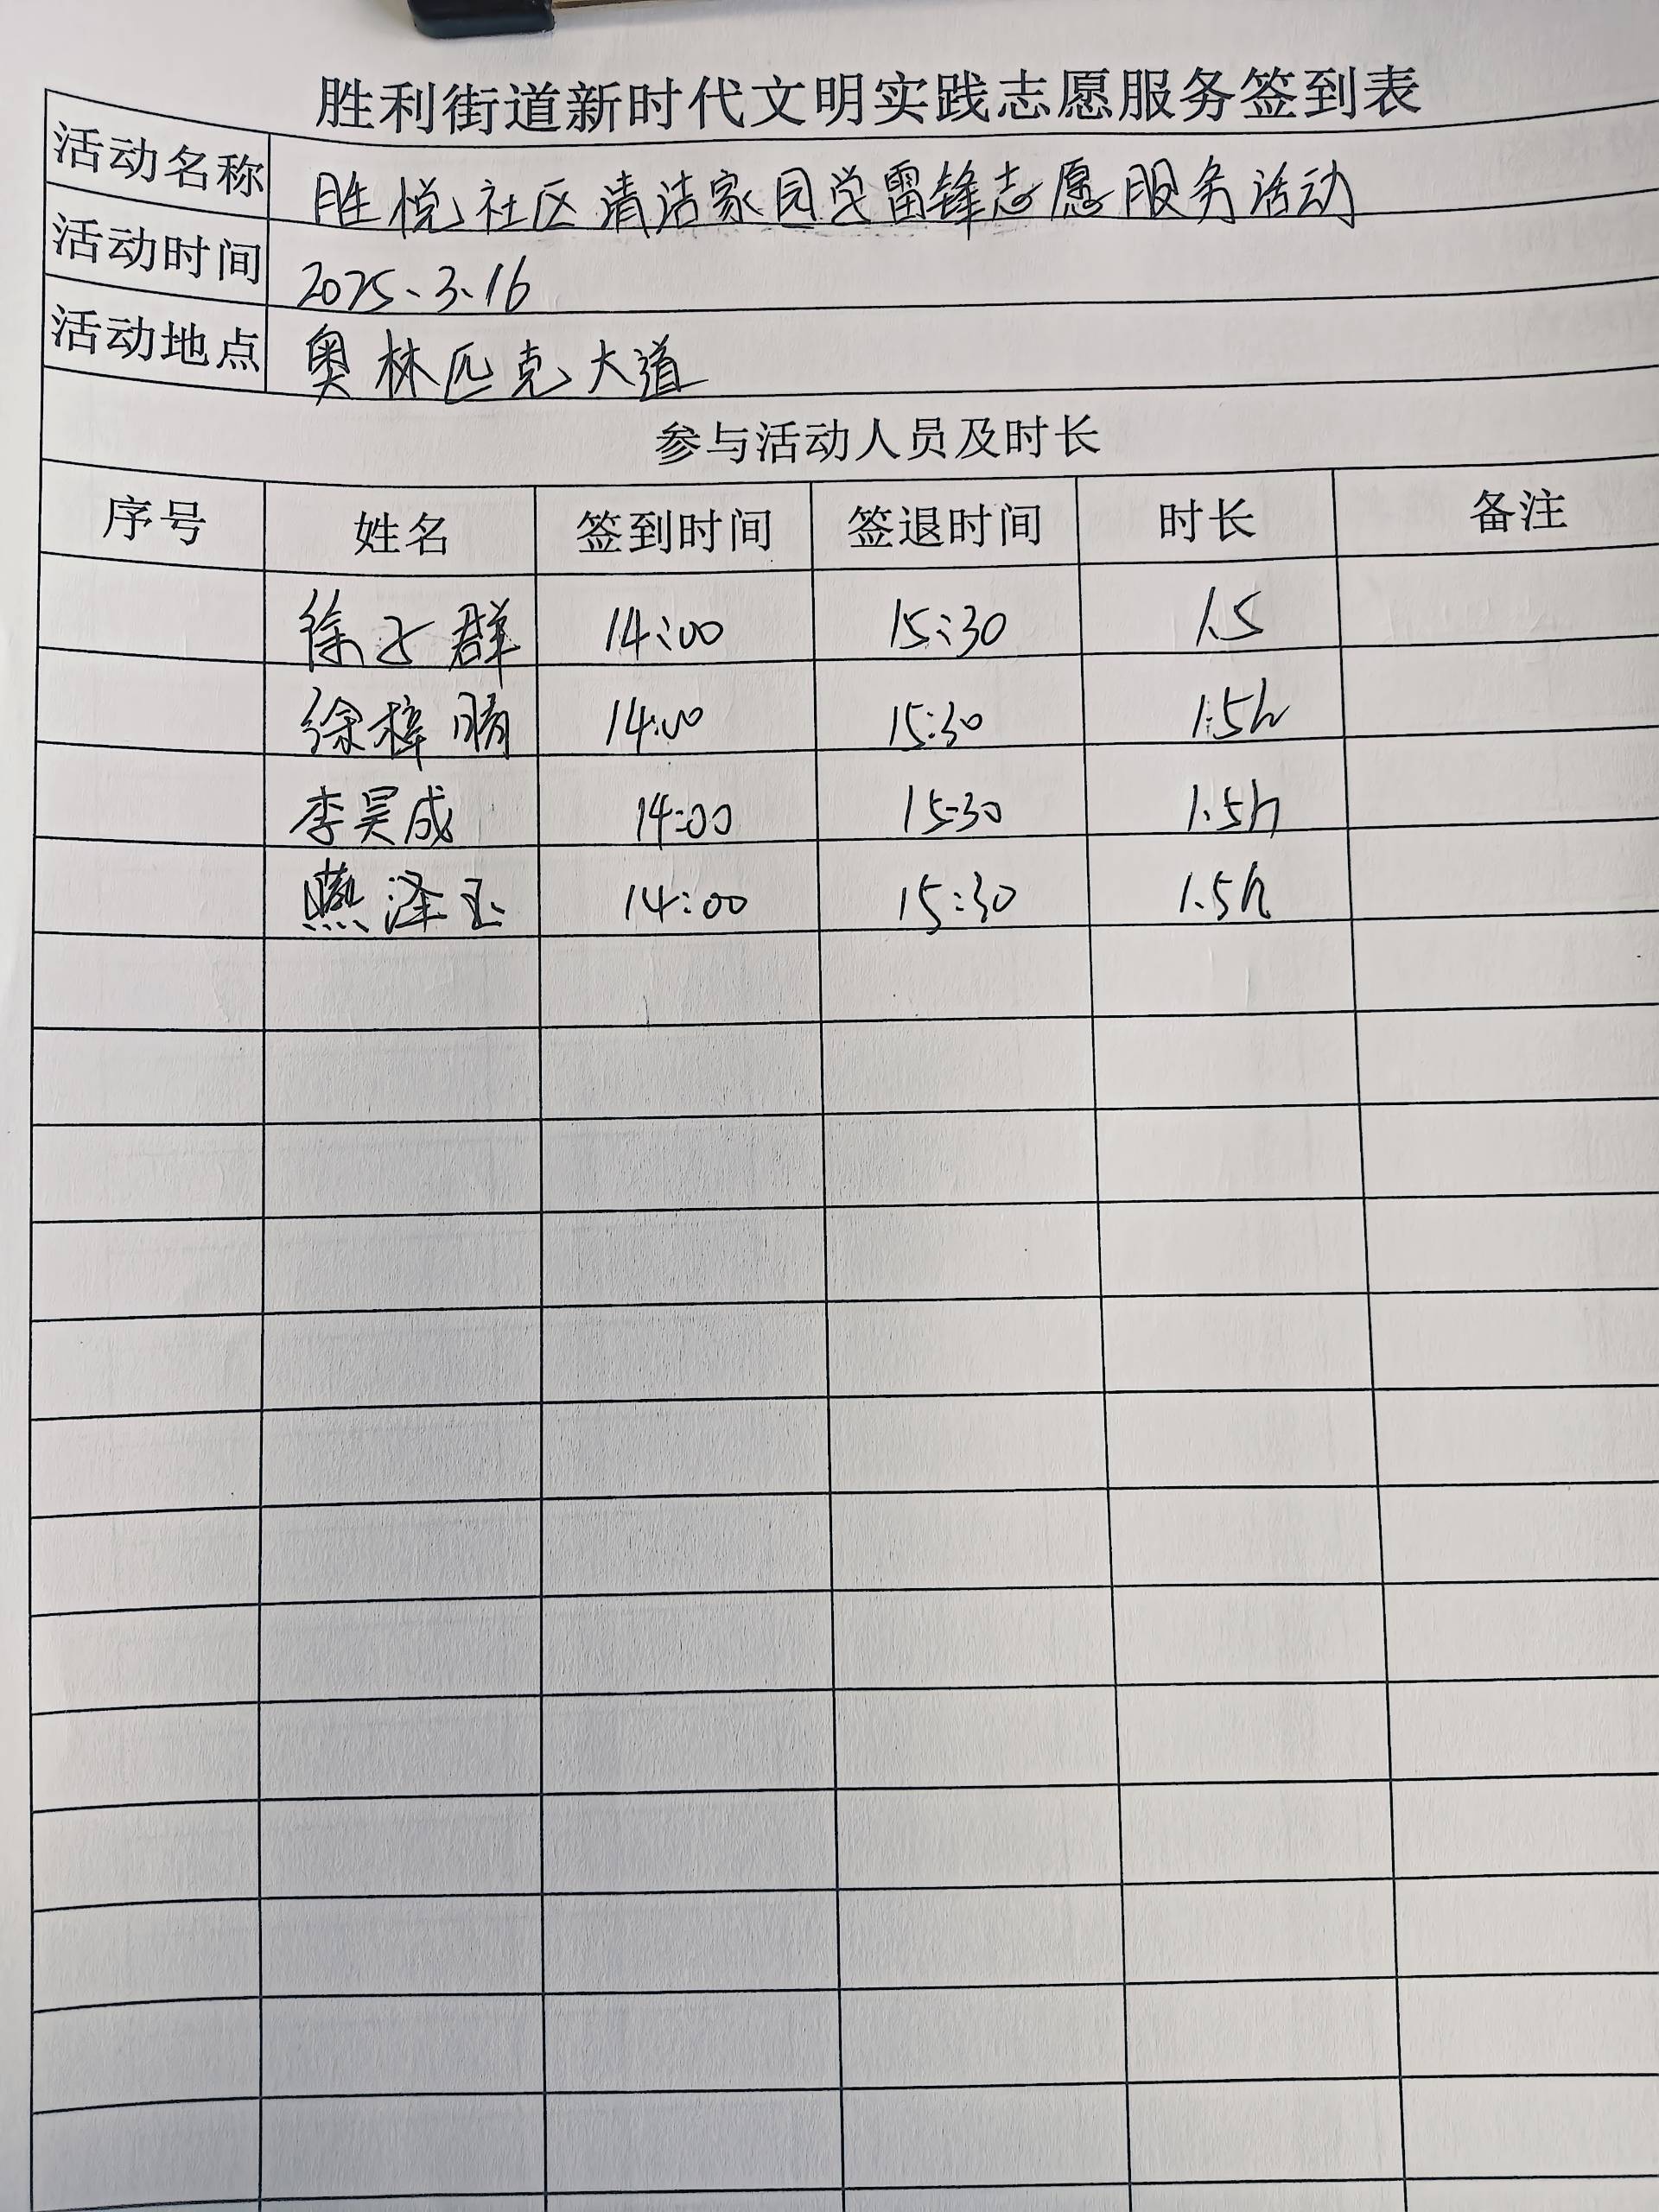 胜利街道新时代文明实践志愿服务签到表
活动名称 胜悦社区清洁家园学雷锋志愿服务活动
活动时间 2025.3.16
活动地点 奥林匹克大道
参与活动人员及时长
序号 姓名 签到时间 签退时间 时长 备注
徐子群 14:00 15:30 1.5
徐梓 14:00 15:30 1.5h
李昊成 14:00 15:30 1.5h
燕泽玉 14:00 15:30 1.5h